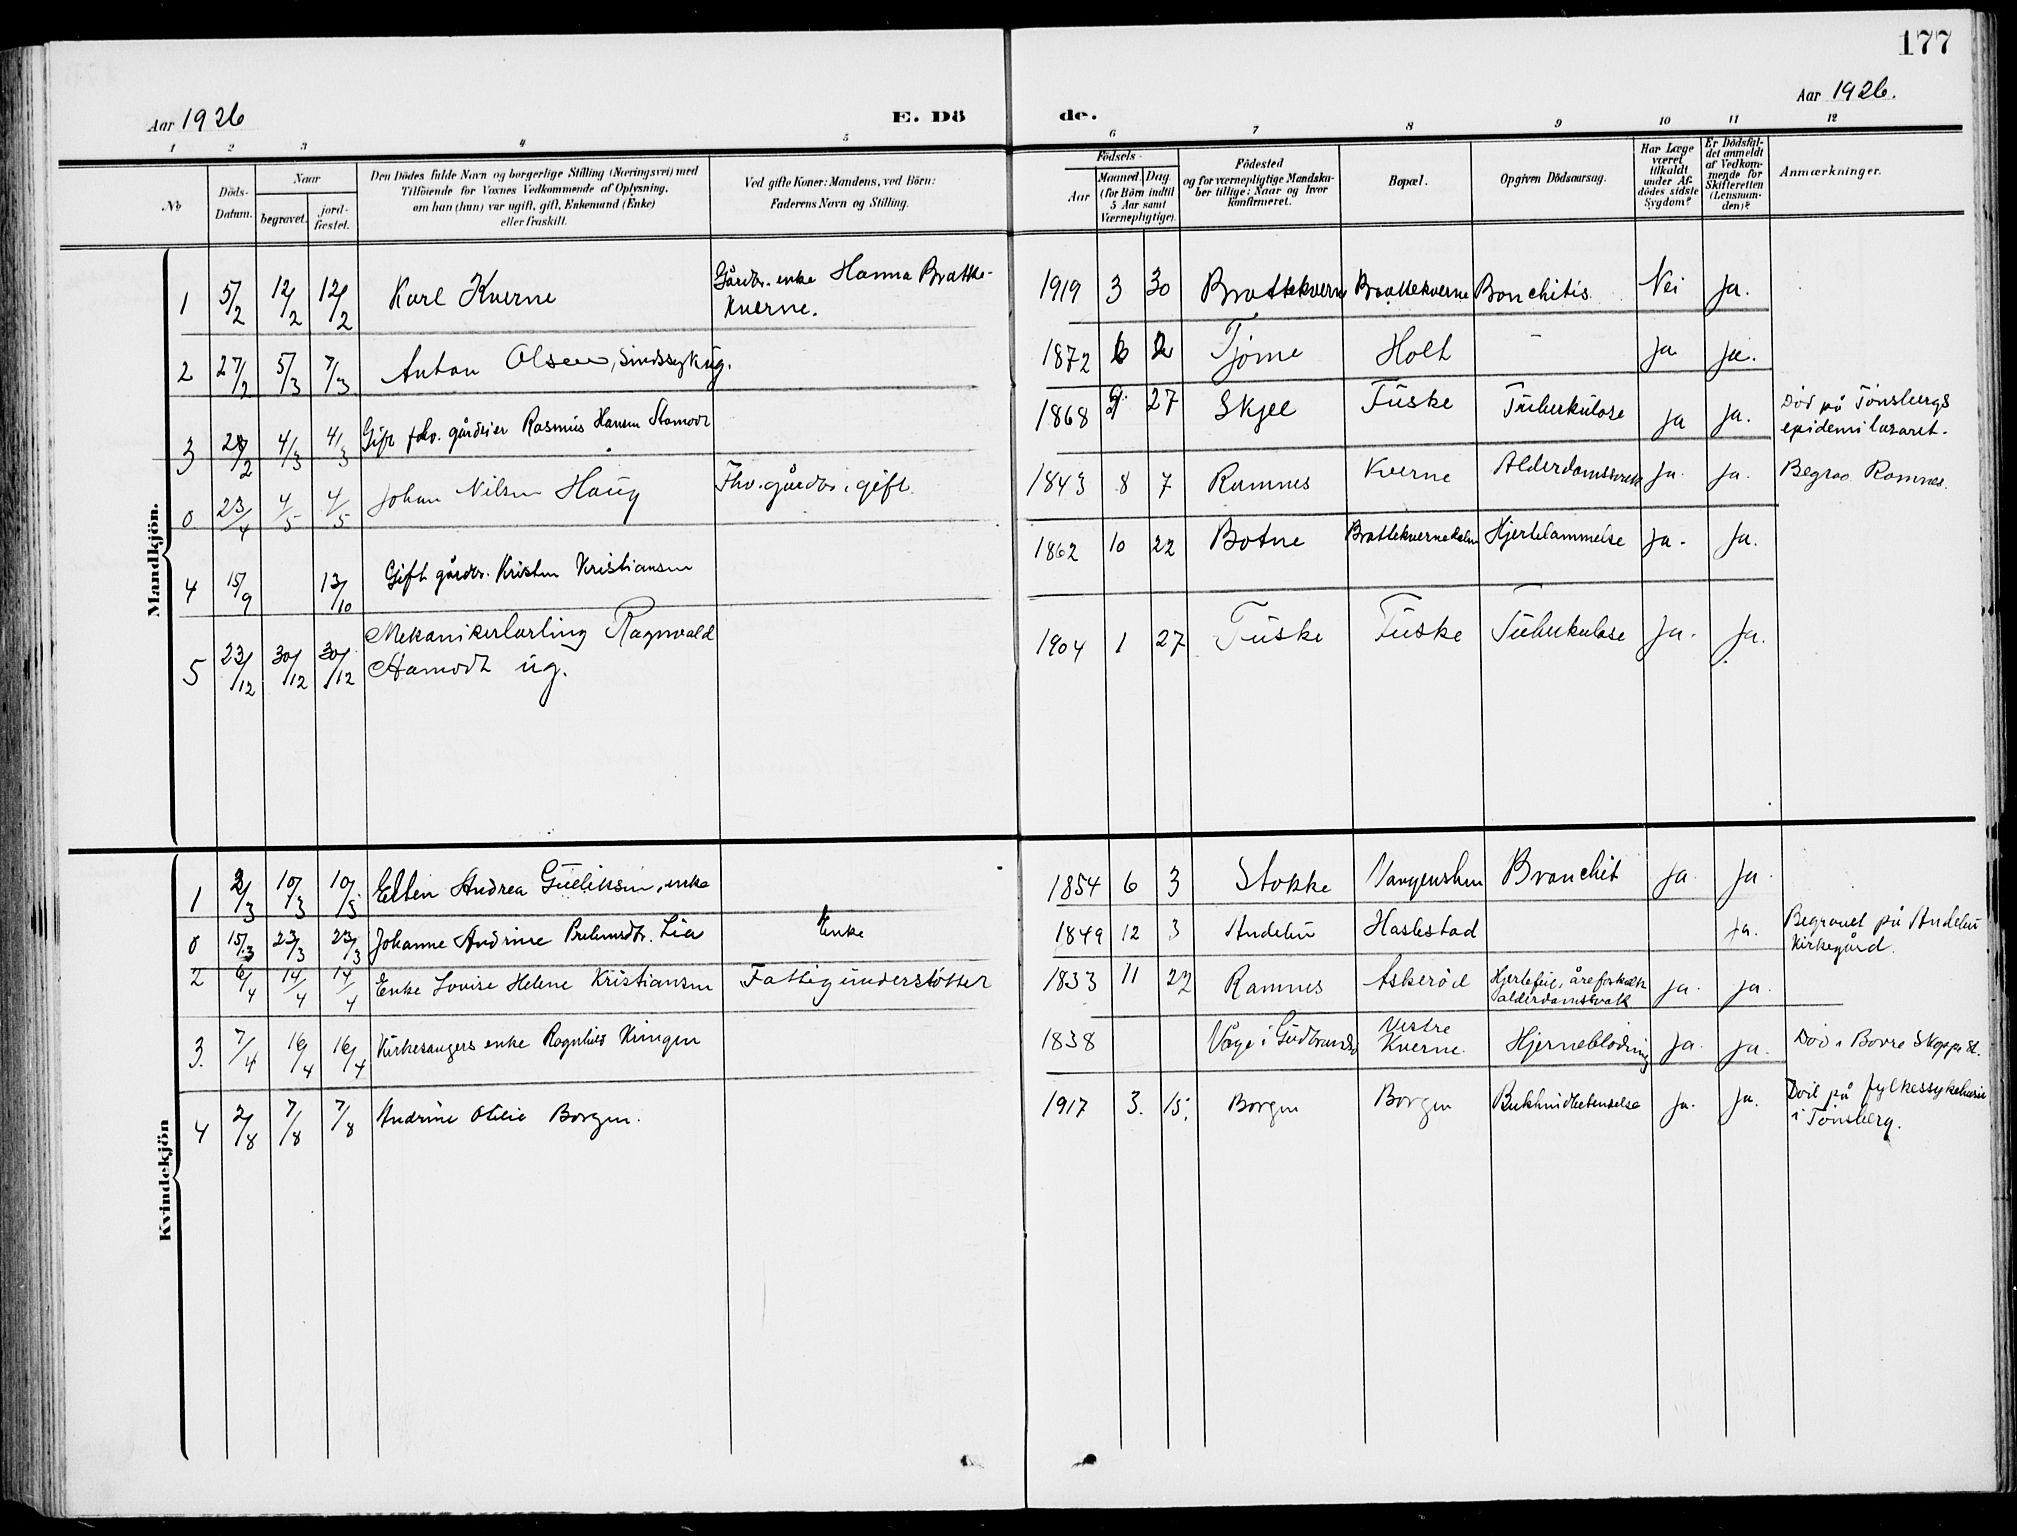 177
Aar 1926
E. Dö
de.
Aar 1926.
1 2 3 4 5 6 7 8 9 10 11 12
No
Döds-
Datum.
Naar
begravet.
jord-
fæstet.
Den Dödes fulde Navn og borgerlige Stilling (Næringsvei) med
Tilföiende for Voxnes Vedkommende af Oplysning,
om han (hun) var ugift, gift, Enkemand (Enke)
eller fraskilt.
Ved gifte Koner: Mandens, ved Börn:
Faderens Navn og Stilling.
Födsels-
Aar
Maaned.
Dag.
(for Börn indtil
5 Aar samt
Værnepligtige).
Födested
og for værnepligtige Mandska-
ber tillige: Naar og hvor
konfirmeret.
Bopæl.
Opgiven Dödsaarsag.
Har Læge
været
tilkaldt
under Af-
dödes sidste
Sygdom?
Er Dödsfal-
det anmeldt
af Vedkom-
mende for
Skifteretten
(Lensman-
den)?
Anmærkninger.
Mandkjön.
1 5/2 12/2 12/2 Karl Kverne Gårdbr. enke Hanna Bratte-
kverne. 1919 3 30 Brattekverne Brattekverne Bonchitis Nei Ja.
2 27/2 5/3 7/3 Anton Olsen, Sindssyk ug. 1872 6 2 Tjøme Holt - Ja Ja.
3 28/2 4/3 4/3 Gift fhv. gårdeier Rasmus Hansen Stamodt 1868 9 27 Skjee Fuske Tuberkulose Ja Ja. Död på Tönsbergs
epidemilasaret.
0 23/4 4/5 4/5 Johan Nilsen Haug Fhv. gårdbr. gift. 1843 8 7 Ramnes Kverne Alderdomssvakh Ja. Ja. Begrav Ramnes.
4 15/9 13/10 Gift gårdbr. Kristen Kristiansen 1862 10 22 Botne Brattekvernedalen Hjertelammelse Ja. Ja.
5 23/12 30/12 30/12 Mekanikerlærling Ragnvald
Stamodt ug. 1904 1 27 Fuske Fuske Tuberkulose Ja. Ja.
Kvindekjön
1 2/3 10/3 10/3 Ellen Andrea Gulliksen, enke 1854 6 3 Stokke Vangensten Bronchit Ja. Ja.
0 15/3 23/3 23/3 Johanne Andrine Lia Enke 1849 12 3 Andebu Haslestad Ja. Begravet på Andebu
Kirkegård.
2 6/4 14/4 14/4 Enke Lovise Helene Kristiansen Fattigunderstøttet 1833 11 22 Ramnes Askerød Hjertefeil, åreforkalk
alderdomssvakh Ja. Ja.
3. 7/4 16/4 16/4 Kirkesangers enke Ragnhild Kringen 1838 Våge i Gudbrandsd Vestre
Kverne. Hjerneblödning Ja. Ja. Död i Borre Skoppe St.
4 2/8 7/8 7/8 Andrine Otilie Borgen. 1917 3. 15. Borgen Borgen Bukhindbetendelse Ja. Ja. Död på fylkessykehuset
i Tönsberg.